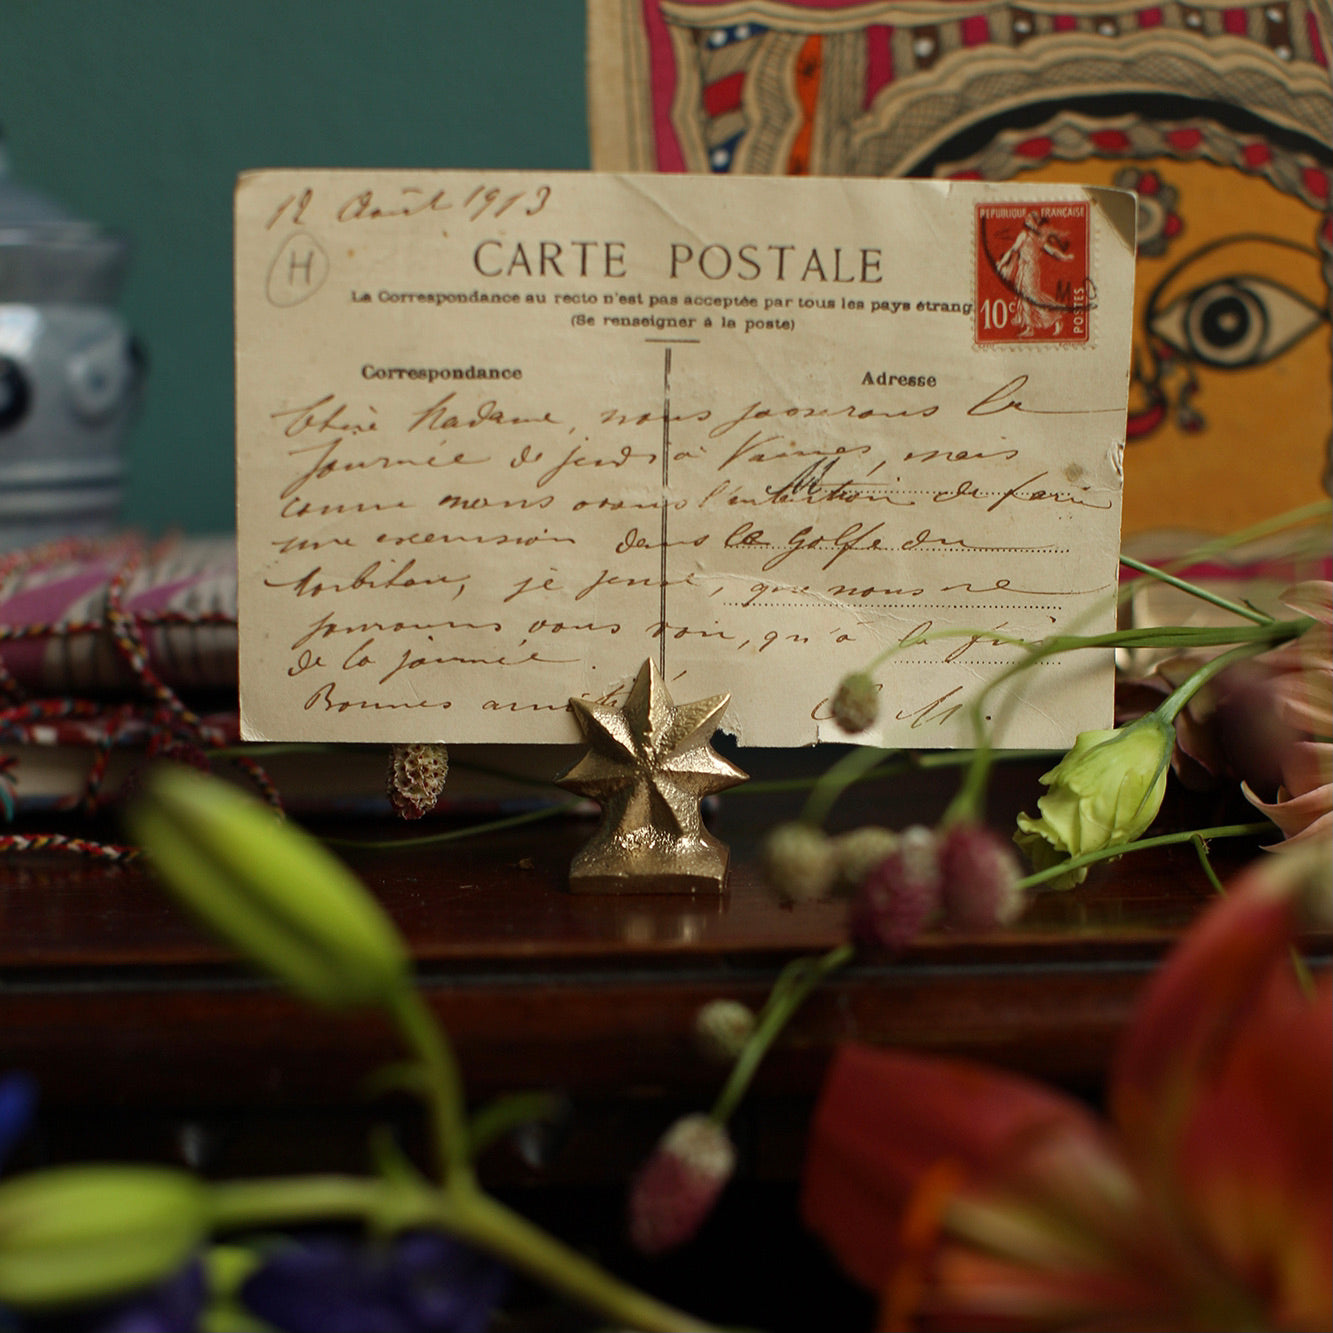 12 Août 1913
H
CARTE POSTALE
La Correspondance au recto n'est pas acceptée par tous les pays étrang
(Se renseigner à la poste)
REPUBLIQUE FRANÇAISE
10c
POSTES
Correspondance
Adresse
Chère Madame, nous passerons la
journée de jeudi à Vannes, mais
comme nous avons l'intention de faire
une excursion dans le Golfe du
Morbihan, je pense, que nous ne
pourrons vous voir, qu'à la fin
de la journée.
Bonnes amitiés
M.